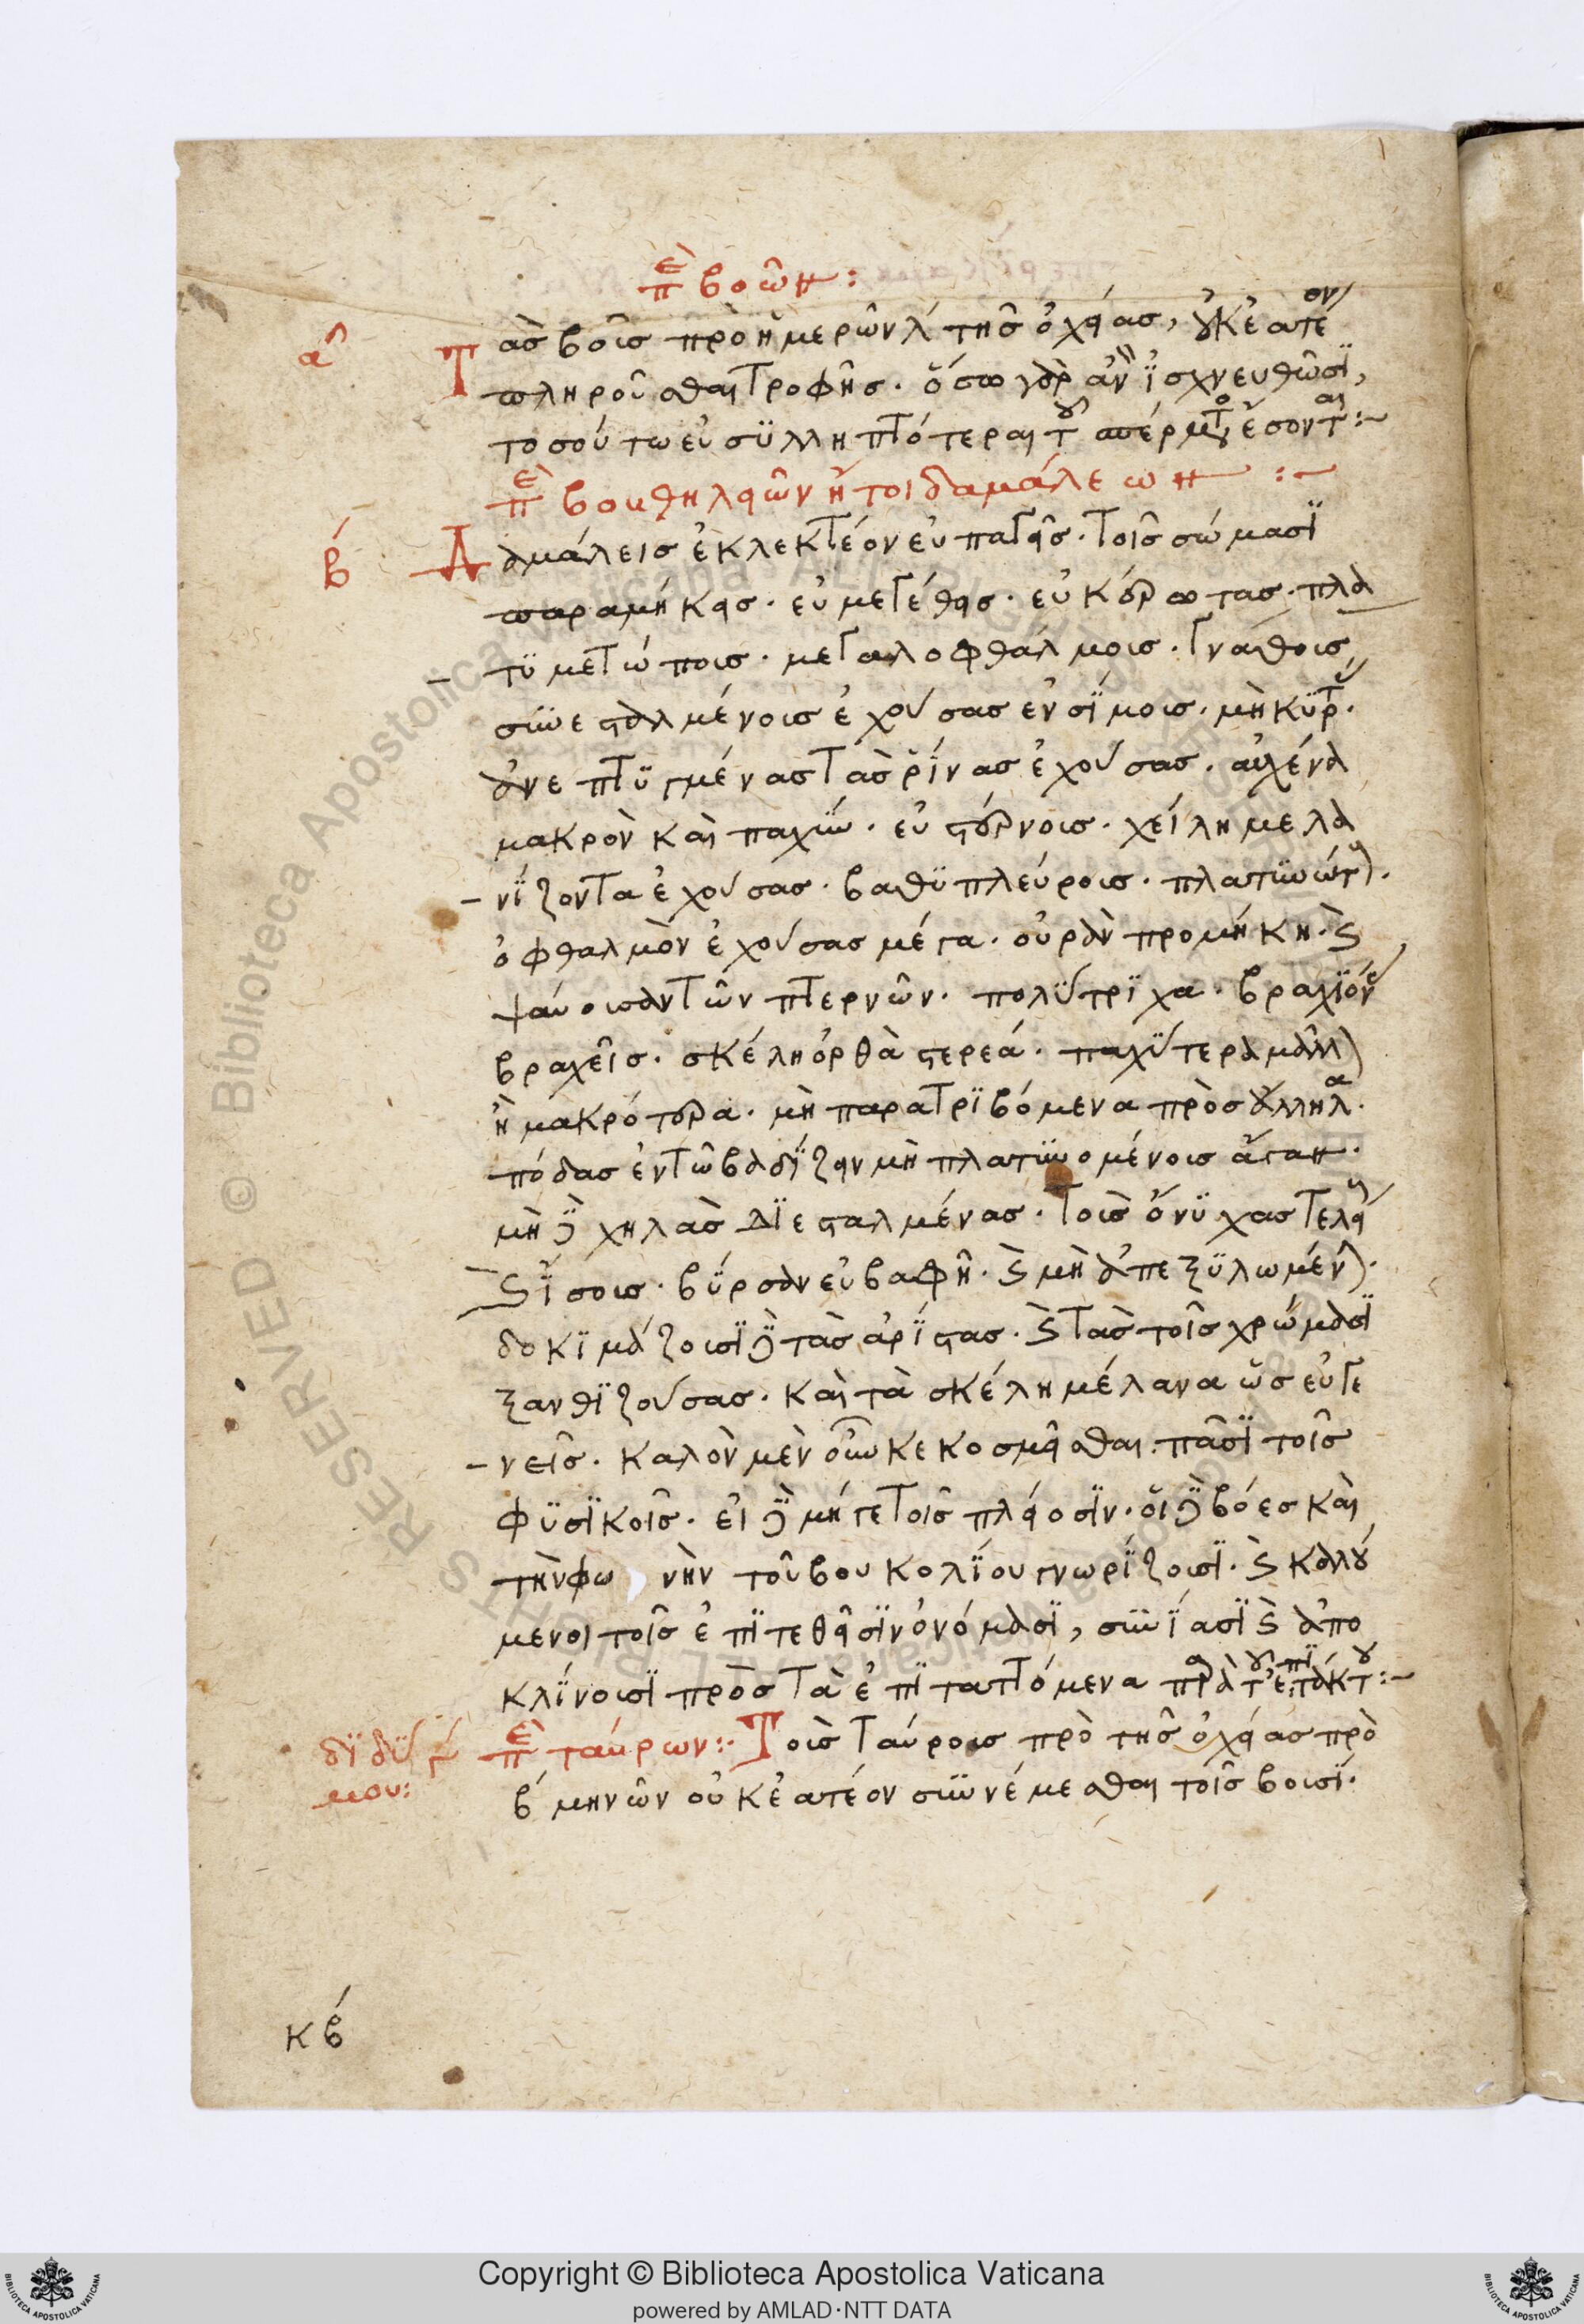 περὶ βοῶν:
α
Τὰς βοῦς πρὸ ἡμερῶν λ τῆς ὀχείας, οὐκ ἐατέον
πληροῦσθαι τροφῆς. ὅσω γὰρ ἂν ἰσχνευθῶσϊ,
τοσούτω εὐσϋλληπτότεραι τοῦ σπέρματος ἔσονται:~
περὶ βουθηλειῶν ἤτοι δαμάλεων:~
β
Δαμάλεις ἐκλεκτέον εὐπαγεῖς. τοῖς σώμασϊ
παραμήκεις. εὐμεγέθεις. εὐκεράωτας. πλα
τϋμετώπους. μεγαλοφθάλμους. γνάθους
σϋνεσταλμένοις ἐχούσας ἐνσΐμοις. μὴ κϋρτ
ἀνεπτϋγμένας τὰς ῥΐνας ἐχούσας. αὐχένα
μακρὸν καὶ παχϋν. εὐστέρνοις. χείλη μελα
νΐζοντα ἐχούσας. βαθϋπλεύροις. πλατϋνώτ
ὀφθαλμὸν ἐχούσας μέγα. οὐρὰν προμήκη. καὶ
ψαύουσαν τῶν πτερνῶν. πολΰτρϊχα. βραχϊόν
βραχεῖς. σκέλη ὀρθὰ στερεά. παχΰτερα μᾶλλ
ἢ μακρότερα. μὴ παρατρϊβόμενα πρὸς ἄλληλα.
πόδας ἐν τῶ βαδΐζειν μὴ πλατϋνομένοις ἄγαν.
μὴ δὲ χηλὰς διεσταλμένας. τοὺς ὄνϋχας τελεί
καὶ ΐσους. βΰρσαν εὐβαφῆ. καὶ μὴ ἀπεξϋλωμέν
δοκϊμάζουσϊ δὲ τὰς ἀρΐστας. καὶ τὰς τοῖς χρώμασϊ
ξανθϊζούσας. καὶ τὰ σκέλη μέλανα ὡς εὐγε
νεῖς. καλὸν μὲν οὖν κεκοσμεῖσθαι πᾶσϊ τοῖς
φϋσϊκοῖς. εἰ δὲ μή γε τοῖς πλείοσϊν. οἱ δὲ βόες καὶ
τὴν φωνὴν τοῦ βουκολΐου γνωρΐζουσϊ. καὶ καλού
μενοι τοῖς ἐπϊτεθεῖσϊν ὀνόμασϊ, σϋνΐασϊ καὶ ἀπο
κλΐνουσϊ πρὸς τὰ ἐπϊταττόμενα παρὰ τοῦ ἐπιτάκτου:~
διδΰ
μου:
γ περὶ ταύρων:· Τοὺς ταύρους πρὸ τῆς ὀχείας πρὸ
β μηνῶν οὐκ ἐατέον σϋννέμεσθαι τοῖς βουσΐ.
κβ
Copyright © Biblioteca Apostolica Vaticana
powered by AMLAD·NTT DATA